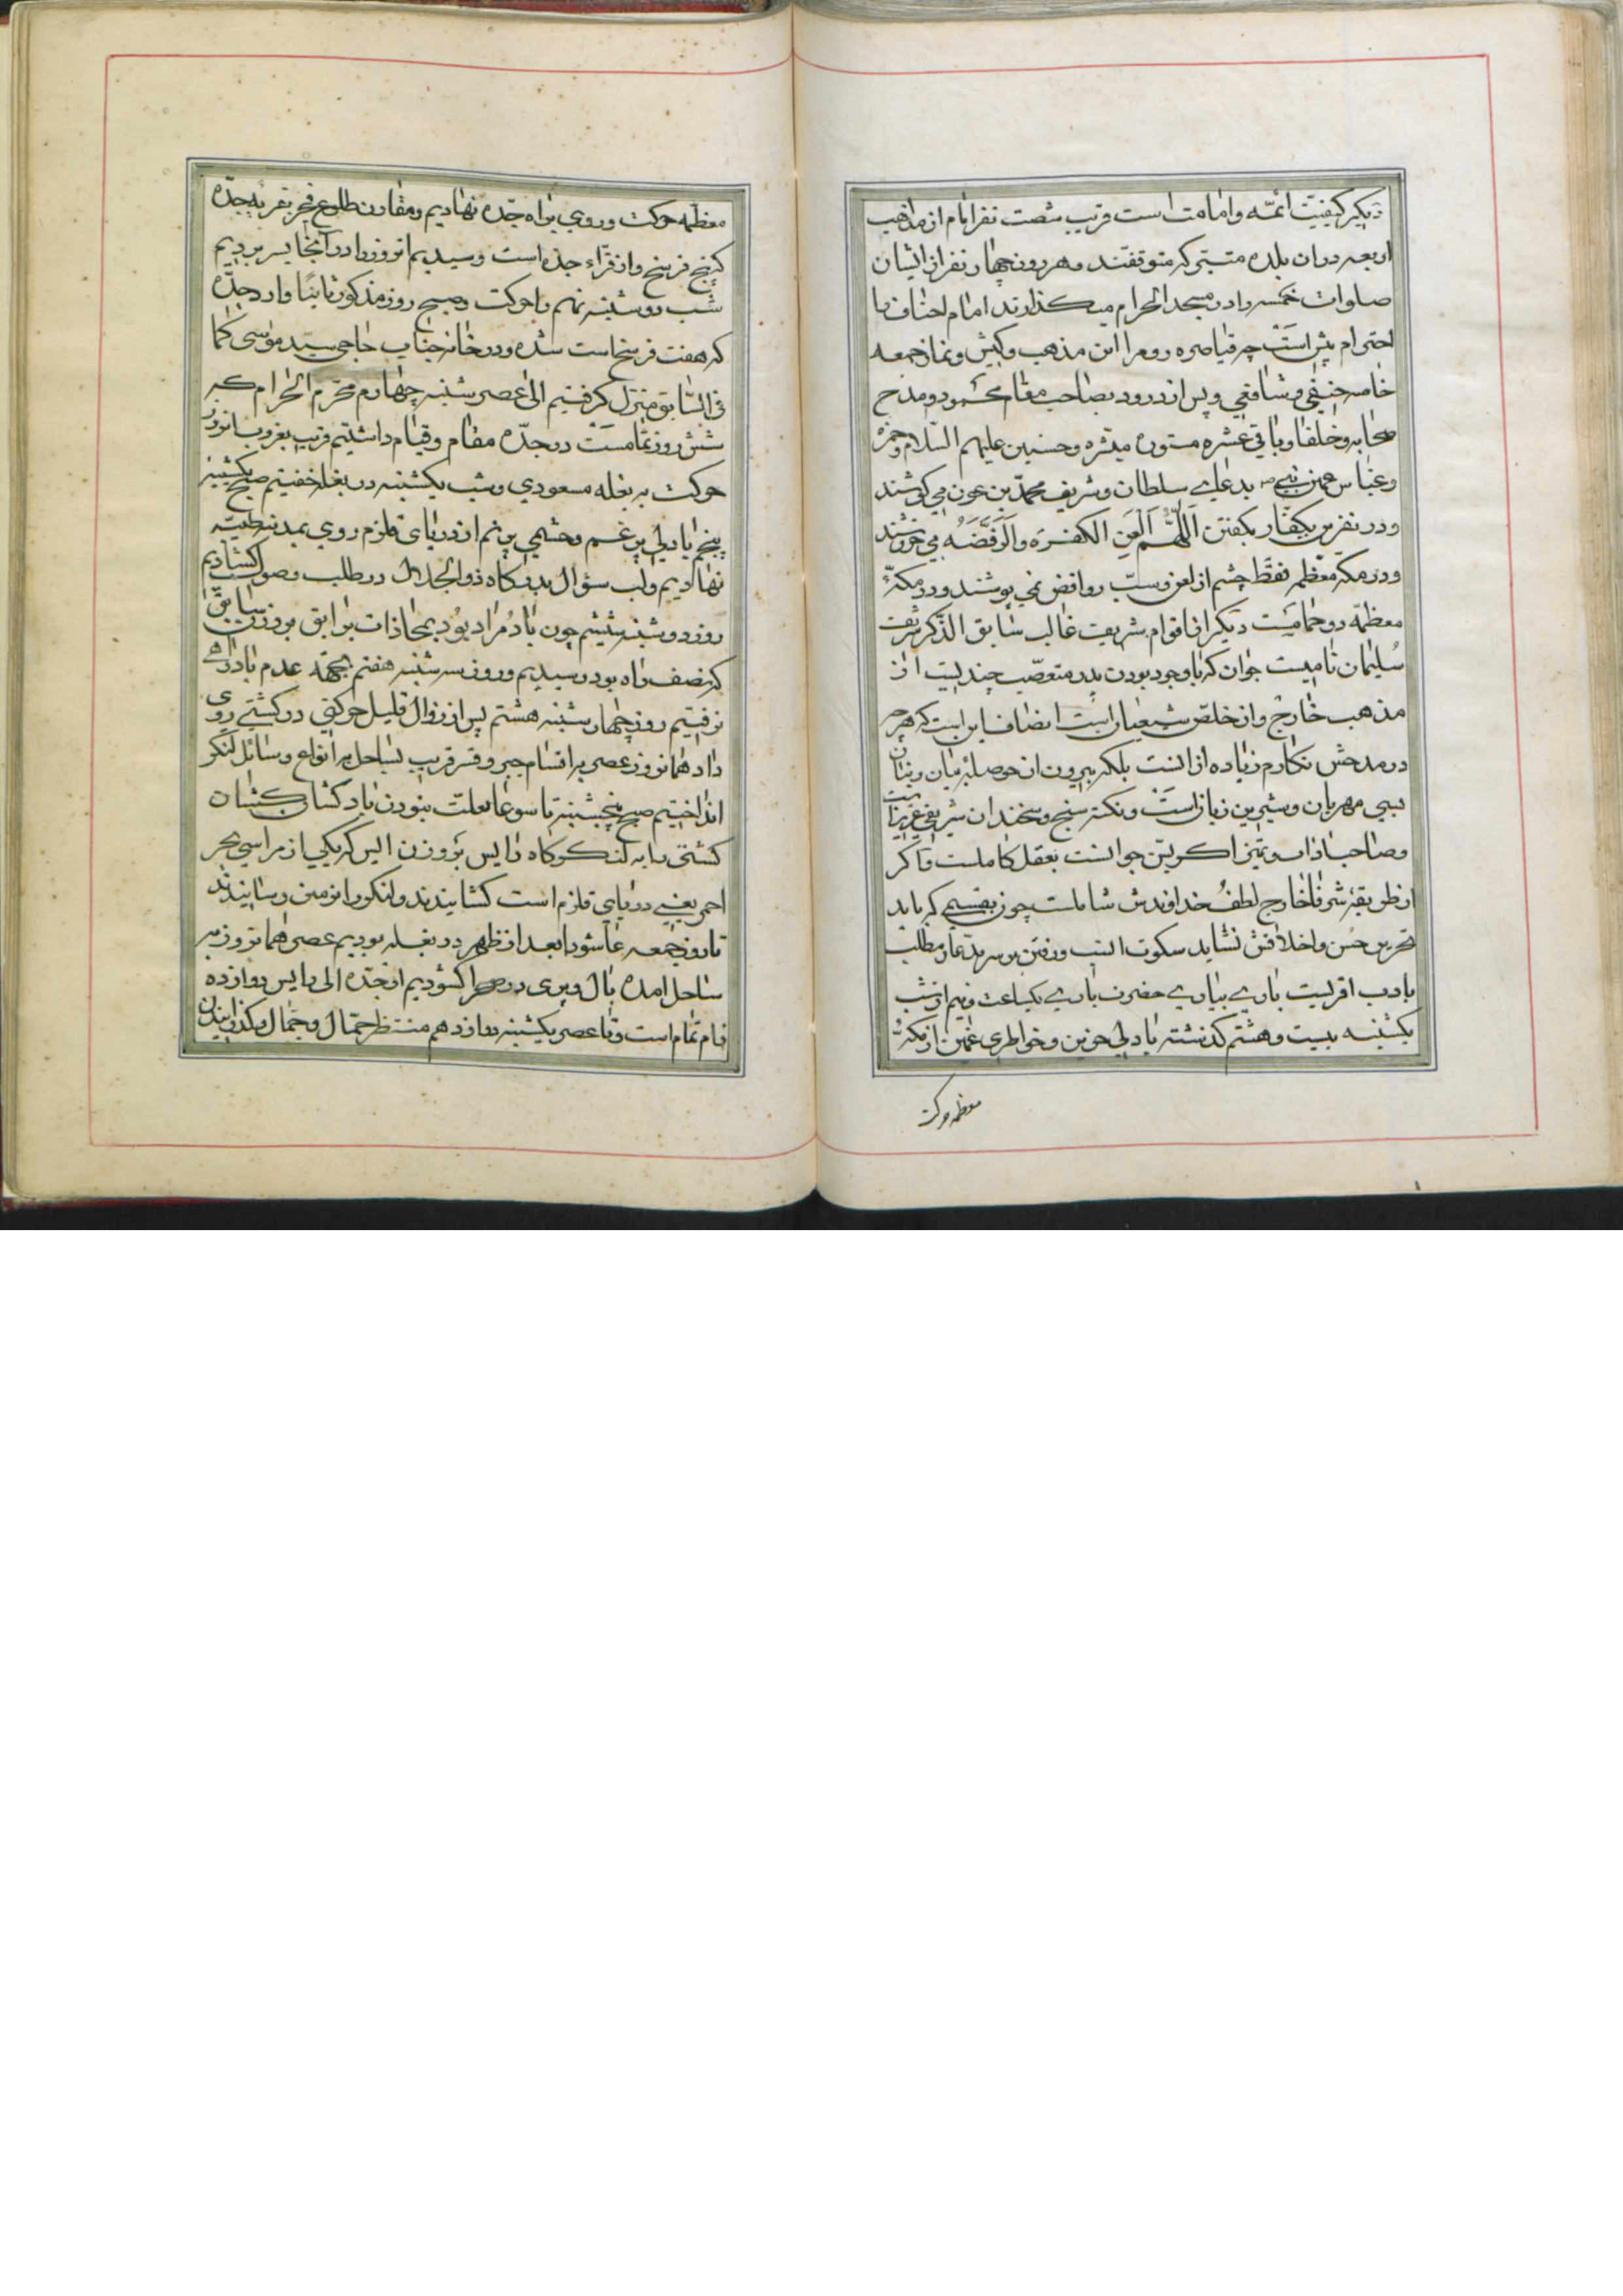 دیگر کیفیّت ائمّه و امامت است قریب شصت نفر امام از مذاهب
اربعه در ان بلده متبتی که متوقفند و هر روز چهار نفر از ایشان
صلوات خمسه را در مسجد الحرام میکذارند امام احناف با
احترام پیش است چه قیاصره روم را این مذهب و کیش و نماز جمعه
خاصه حنیفی و شافعی و پس از درود بصاحب مقام محمود و مدح
صحابه و خلفا و باقی عشره مستوره مبشره و حسنین علیهم السّلام و حمزه
و عبّاس عمین نبی ص بدعای سلطان و شریف محمّد بن عون می کوشند
و در نفرین بکفّار بکفتن اَللّهُمَّ اَلْعَنِ الکفَرَه وَالرَفَضَه می خروشند
و در مکّه معظّمه فقط چشم از لعن و سبّ روافض نمی پوشند و در مکّهٔ
معظّمه دو حمامست دیکر از اقوام شریف غالب سابق الذّکر شریف
سُلیمان نامیست جوان که با وجود بودن پدر متعصّب چندیست از
مذهب خارج و از خلّص شیعیان است انصاف این است که هر چه
در مدحش نکارم زیاده از انست بلکه بیرون از حوصلهٔ بیان و بنان
بسی مهربان و شیرین زبان است و نکته سنج و سخندان شریفی عزیز
و صاحب اداب و تمیز اکر بتن جوانست بعقل کاملست و اکر
از طریقهٔ شرفا خارج لطف خداوندش شاملست چون بقسمی که باید
تحریر حسن و اخلاقش نشاید سکوت انسب و رفتن بر سر مدّعا و مطلب
بادب اقربست باری بیاری حضرت باری یکساعت و نیم از شب
یکشنبه بیست و هشتم کذشته با دلی حزین و خواطری غمین از مکّهٔ
معظمه حرکت
معظّمه حرکت و روی براه جدّه نهادیم و مقارن طلوع فجر بقریه جدّه
که پنج فرسخ و از قراء جدّه است رسیدیم انروز را در آنجا بسر بردیم
شب دوشنبه نهم را حرکت و صبح روز مذکور ثانیًا وارد جدّه
که هفت فرسخ است شده و در خانه جناب حاجی سیّد موسی کما
فی السّابق منزل کرفتیم الی عصر شنبه چهارم محرّم الحرام که
شش روز تمامست در جدّه مقام و قیام داشتیم قریب بغروب انروز
حرکت به بغله مسعودی و شب یکشنبه در بغله خفتیم صبح یکشنبه
پنجم با دلی پر غم و چشمی پر نم از دریای قلزم روی بمدینه طیّبه
نهادیم و لب سؤال بدرکاه ذوالجلال در طلب وصول کشادیم
روز دوشنبه ششم چون باد مُراد بُود بمحاذات برابق بروزن سابق
که نصف راه بود رسیدیم و روز سه شنبه هفتم بجهة عدم باد راهی
نرفتیم روز چهار شنبه هشتم پس از زوال قلیل حرکتی در کشتی روی
داد همانروز عصر به اقسام جبر و قسر قریب بساحل به انواع وسائل لنکر
انداختیم صبح پنجشنبه تاسوعا بعلّت نبودن باد کشان کشان
کشتی را به لنکرکاه رایس بروزن الیس که یکی از مراسی بحر
احمر یعنی دریای قلزم است کشانیدند و لنکر را بزمین رسانیدند
تا روز جمعه عاشورا بعد از ظهر در بغله بودیم عصر همانروز به
ساحل امده بال و پری در صحرا کشودیم از جدّه الی رایس دوازده
نام تمام است و تا عصر یکشنبه دوازدهم منتظر حمّال و جمّال و کذرانیدن